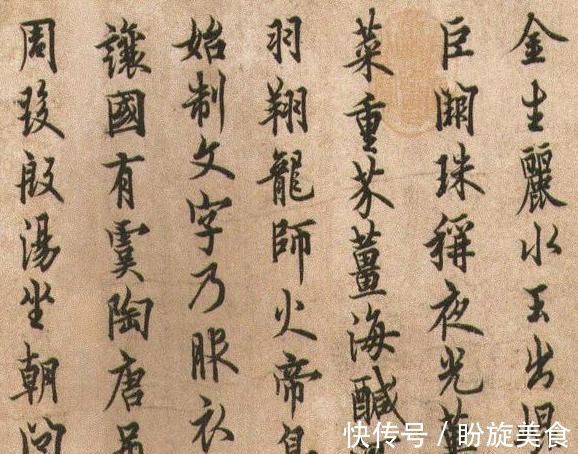 金生麗水玉出
巨闕珠稱夜光
菜重芥薑海醎
羽翔龍師火帝鳥
始制文字乃服衣
讓國有虞陶唐弔
周發殷湯坐朝問
快传号/盼旋美食